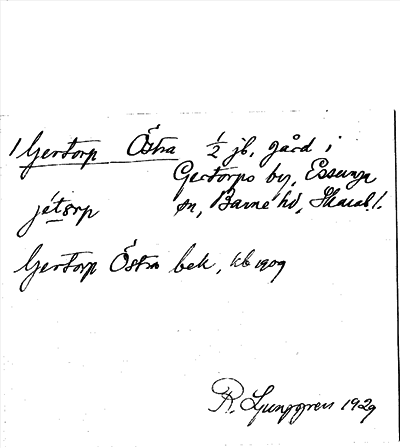 1 Gertorp Östra ½ jb, gård i
Gertorps by, Essunga
sn, Barne hd, Skarab.l.
jétorp
Gertorp Östra bek, kb 1909
R. Ljunggren 1929